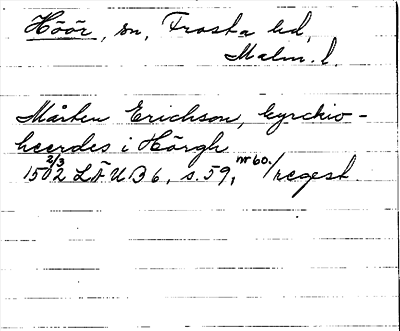 Höör, sn, Frosta hd,
Malm. l.
Mårten Erichson, kyrckio-
heerdes i Hörgh
1502 2/3 LÄUB 6, s. 59, nr 60./regest.